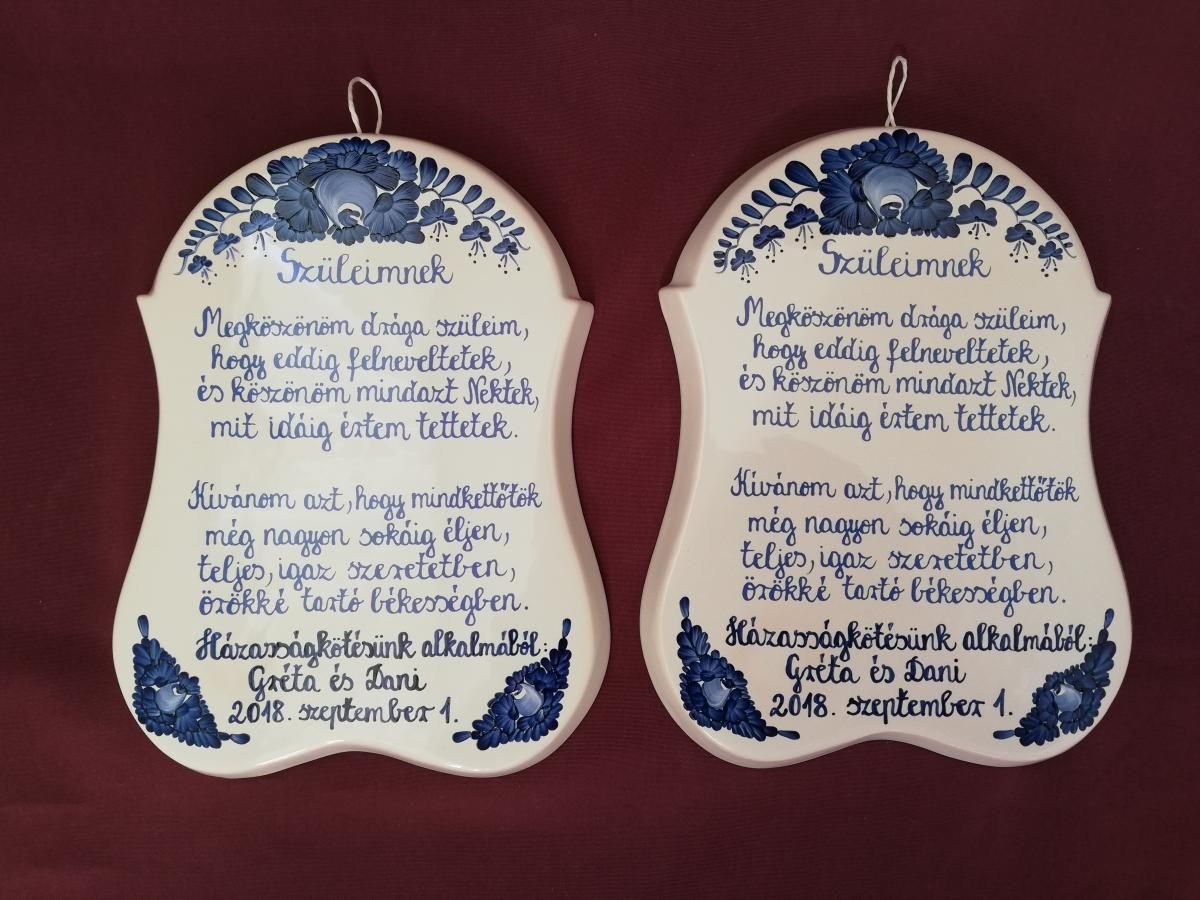 Szüleimnek
Megköszönöm drága szüleim,
hogy eddig felneveltetek,
és köszönöm mindazt Nektek,
mit idáig értem tettetek.
Kívánom azt, hogy mindkettőtök
még nagyon sokáig éljen,
teljes, igaz szeretetben,
örökké tartó békességben.
Házasságkötésünk alkalmából:
Gréta és Dani
2018. szeptember 1.
Szüleimnek
Megköszönöm drága szüleim,
hogy eddig felneveltetek,
és köszönöm mindazt Nektek,
mit idáig értem tettetek.
Kívánom azt, hogy mindkettőtök
még nagyon sokáig éljen,
teljes, igaz szeretetben,
örökké tartó békességben.
Házasságkötésünk alkalmából:
Gréta és Dani
2018. szeptember 1.